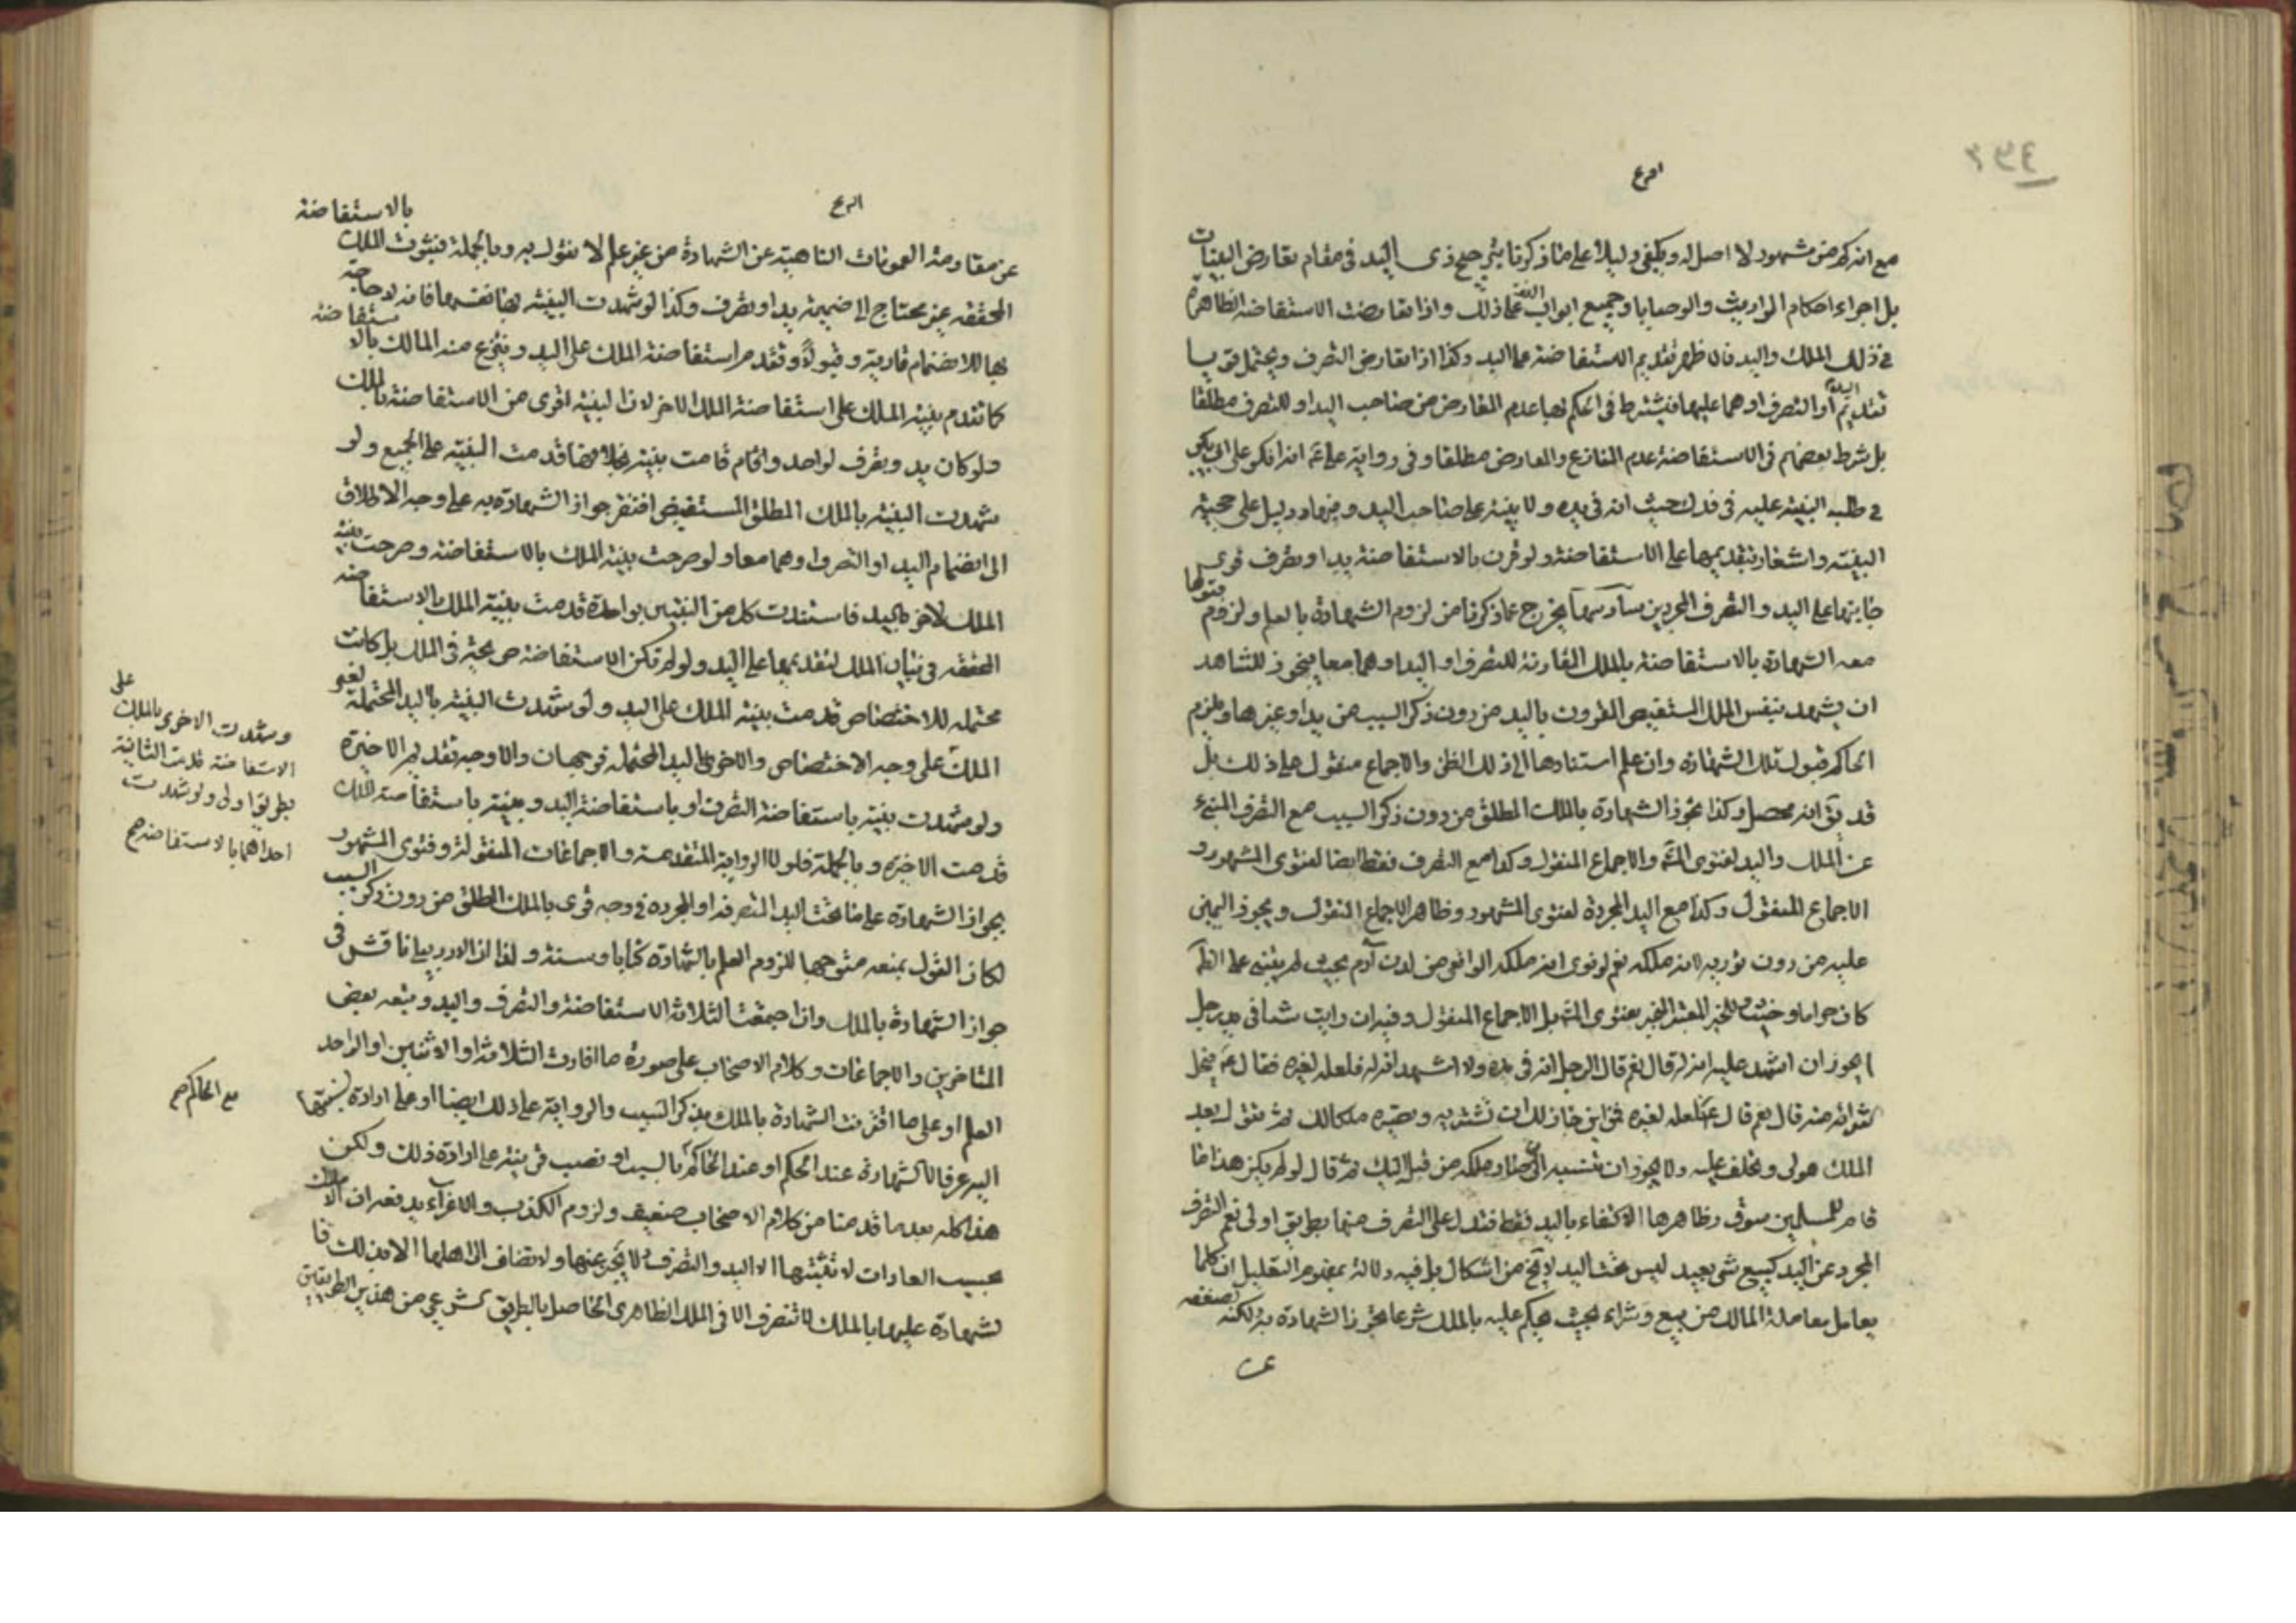 مع انه كم من مشهور لا اصل له ويكفي دليلا على ما ذكرنا ترجيح ذي اليد في مقام تعارض البينات
بل اجراء احكام المواريث والوصايا وجميع ابواب الفقه على ذلك واذا تعارضت الاستفاضة الظاهرة
في ذلك الملك واليد فالاظهر تقديم الاستفاضة على اليد وكذا اذا تعارض التصرف ويحتمل قويا
تقديم اليد او التصرف او هما عليها فيشترط في الحكم بها عدم المعارض من صاحب اليد او للتصرف مطلقا
بل شرط بعضهم في الاستفاضة عدم المنازع والمعارض مطلقا وفي رواية علي ع انه انكر على ابي بكر
في طلبه البينة عليه في فدك حيث انه في يده ولا بينة على صاحب اليد وفيها دليل على حجية
البينة واشعار بتقديمها على الاستفاضة ولو قرن بالاستفاضة يد او تصرف قوى
جانبها على اليد والتصرف المجردين يخرج عما ذكرنا من لزوم الشهادة بالعلم ولزوم قبولها
معه الشهادة بالاستفاضة بالملك المقارنة للتصرف او اليد او هما معا فيجوز للشاهد
ان يشهد بنفس الملك المستفيض المقرون باليد من دون ذكر السبب من يد او غيرها ويلزم
الحاكم قبول تلك الشهادة وان علم استنادها الى ذلك الظن والاجماع منقول على ذلك بل
قد يق انه محصل وكذا تجوز الشهادة بالملك المطلق من دون ذكر السبب مع التصرف المنبئ
عن الملك واليد لفتوى المش والاجماع المنقول وكذا مع التصرف فقط ايضا لفتوى المشهور و
الاجماع المنقول وكذا مع اليد المجردة لفتوى المشهور وظاهر الاجماع المنقول ويجوز اليمين
عليه من دون تورية لانه ملكه نعم لو نوى انه ملكه الواقعي من لدن آدم بحيث لم يبتنى على الظ
كان حراما وحنث للخبر المعتبر المنجبر بفتوى المش بل الاجماع المنقول وفيه ان رايت شيئا في يد رجل
ايجوز ان اشهد عليه انه له قال نعم قال الرجل انه في يده ولا اشهد انه له فلعله لغيره فقال ع فيحل
شرائه منه قال نعم قال ع لعله لغيره فمن اين جاز لك ان تشتريه وتصيره ملكا لك ثم تقول بعد
الملك هو لي وتحلف عليه ولا يجوز ان تنسبه الى من صار ملكه من قبله اليك ثم قال لو لم يكن هذا ما
قام للمسلمين سوق وظاهرها الاكتفاء باليد فقط فتدل على التصرف منها بطريق اولى نعم التصرف
المجرد عن اليد كبيع شيء بعيد ليس تحت اليد لا يخ من اشكال بل فيه دلالة بمفهوم التعليل ان كلما
يعامل معاملة المالك من بيع وشراء بحيث يحكم عليه بالملك شرعا تجوز الشهادة به لكنه لضعفه
عن
بالاستفاضة
عن مقاومة العمومات الناهية عن الشهادة من غير علم لا نقول به وبالجملة فثبوت الملك
المحققة غير محتاج الى ضميمة يد او تصرف وكذا لو شهدت البينة بها نفسها فانه لا حاجة
بها للانضمام تادية وقبولا وتقدم استفاضة الملك على اليد وينتزع منه المالك بالاستفاضة
كما تقدم بينة الملك على استفاضة الملك الاخر لان البينة اقوى من الاستفاضة بالملك
ولو كان يد وتصرف لواحد واقام قامت بينة بخلافها قدمت البينة على الجميع ولو
شهدت البينة بالملك المطلق المستفيض افتقر جواز الشهادة به على وجه الاطلاق
الى انضمام اليد او التصرف او هما معا ولو صرحت بينة الملك بالاستفاضة وصرحت بينة
الملك للاخر باليد فاستندت كل من البينتين بواحدة قدمت بينة الملك بالاستفاضة
المحققة في تبيان الملك لتقديمها على اليد ولو لم تكن الاستفاضة صريحة في الملك بل كانت
محتملة للاختصاص قدمت بينة الملك على اليد ولو شهدت البينة باليد المحتملة لغير
الملك على وجه الاختصاص والاخرى اليد المحتملة فوجهان والاوجه تقديم الاخيرة
ولو شهدت بينة باستفاضة التصرف او باستفاضة اليد وبينة باستفاضة الملك
قدمت الاخيرة وبالجملة فلولا الرواية المتقدمة والاجماعات المنقولة وفتوى المشهور
بجواز الشهادة على ما تحت اليد المتصرفة او المجردة في وجه قوى بالملك المطلق من دون ذكر السبب
لكان القول بمنعه متوجها للزوم العلم بالشهادة كتابا وسنة ولذا ان الاردبيلي ناقش في
جواز الشهادة بالملك وان اجتمعت الثلاثة الاستفاضة والتصرف واليد وتبعه بعض
المتاخرين والاجماعات وكلام الاصحاب على صورة ما افادت الثلاثة او الاثنين او الواحد
العلم او على ما اقترنت الشهادة بالملك بذكر السبب والرواية على ذلك ايضا او على ارادة نسبتها
اليه عرفا لا الشهادة عند الحكم او عند الحاكم بالسبب او نصب قرينة على ارادة ذلك ولكن
هذا كله بعد ما قدمنا من كلام الاصحاب ضعيف ولزوم الكذب والاغراء يدفعه ان الاملاك
بحسب العادات لا تثبتها الا اليد والتصرف ولا يخبر عنها ولا تضاف الى اهلها الا بذلك فا
لشهادة عليها بالملك لا تنصرف الا في الملك الظاهرى الحاصل بالطريق شرعي من هذين الطريقين
على
وشهدت الاخرى بالملك
الاستفاضة قدمت الثانية
بطريق اولى ولو شهدت
احداهما بالاستفاضة صح
مع الحاكم صح